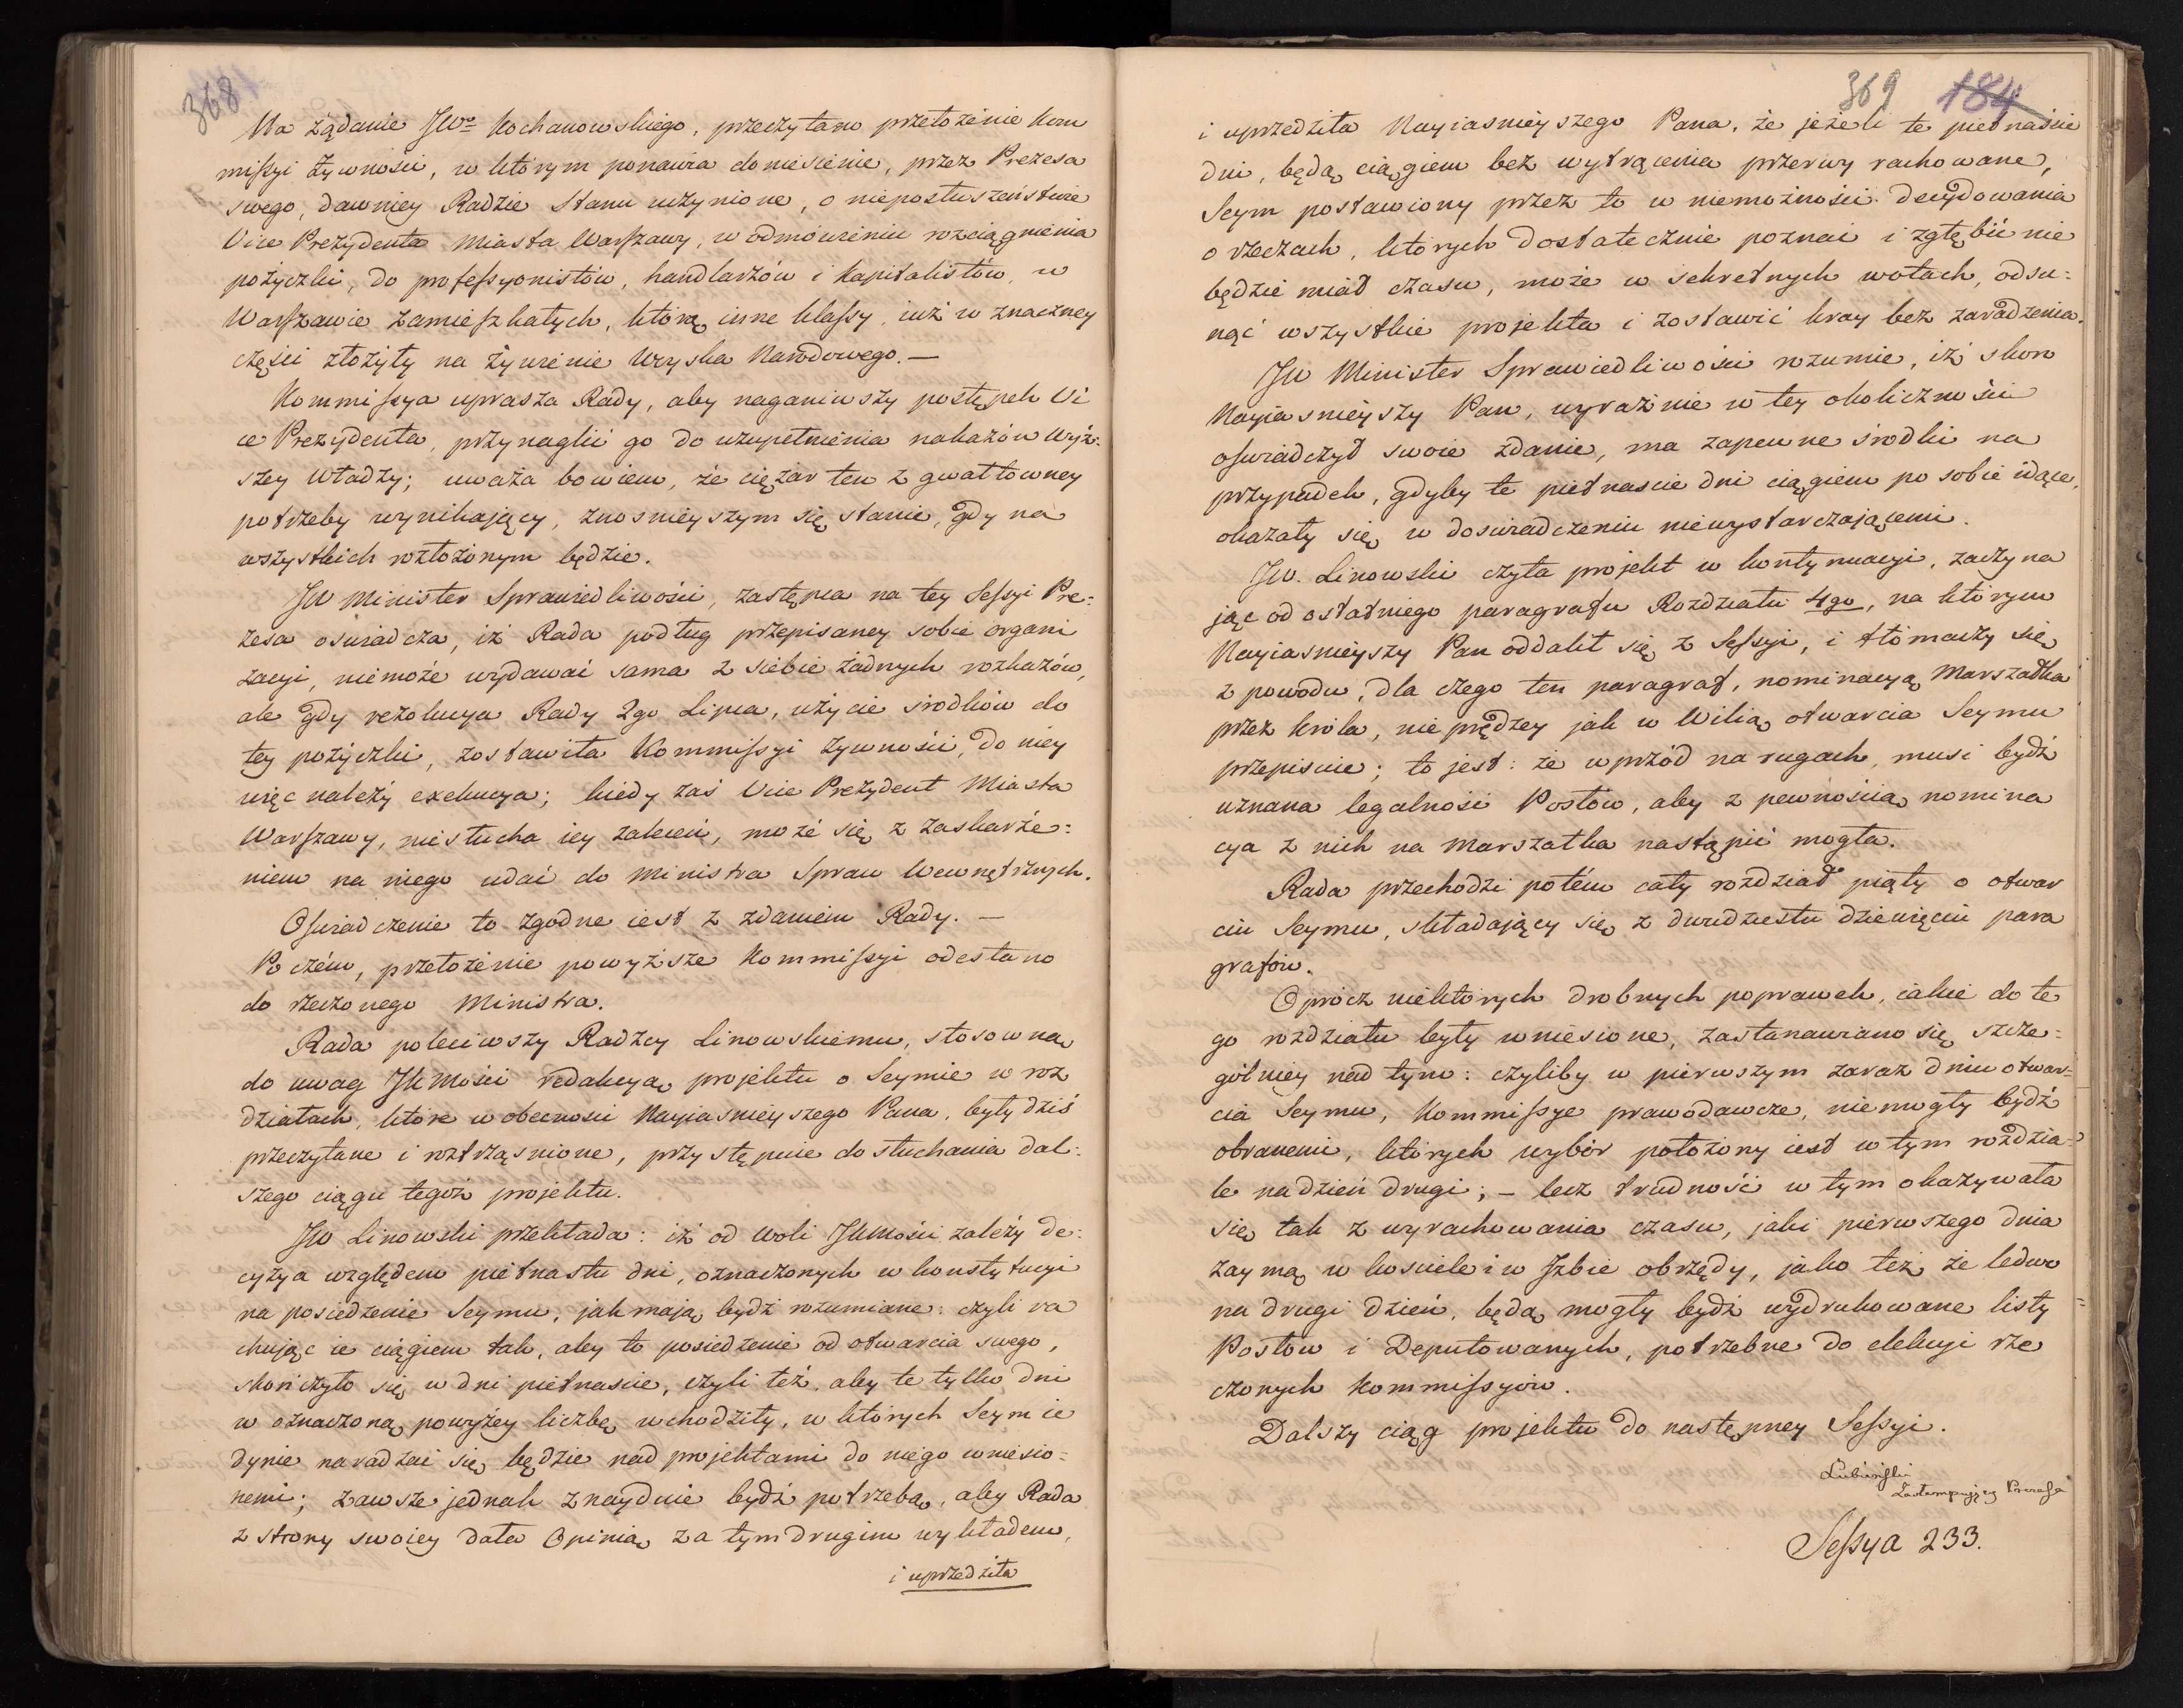 368
Na żądanie JWo Kochanowskiego, przeczytano przełożenie Kom
missyi żywności, w którym ponawia doniesienie, przez Prezesa
swego, dawniey Radzie Stanu uczynione, o nieposłuszeństwie
Vice Prezydenta Miasta Warszawy, w odmówieniu rozciągnienia
pożyczki, do professyonistów, handlarzów i kapitalistów, w
Warszawie zamieszkałych, którą inne klassy, iuż w znaczney
części złożyły na żywienie Woyska Narodowego. —
Kommissya uprasza Rady, aby naganiwszy postępek Vi
ce Prezydenta, przynaglić go do uzupełnienia nakazów wyż:
szey Władzy; uważa bowiem, że ciężar ten z gwałtowney
potrzeby wynikający, znośnieyszym się stanie, gdy na
wszystkich rozłożonym będzie.
JW Minister Sprawiedliwości, zastępca na tey Sessyi Pre:
zesa oświadcza, iż Rada podług przepisaney sobie organi
zacyi, niemoże wydawać sama z siebie żadnych rozkazów,
ale gdy rezolucya Rady 2go Lipca, użycie środków do
tey pożyczki, zostawiła Kommissyi żywności, do niey
więc należy exekucya; kiedy zaś Vice Prezydent Miasta
Warszawy, niesłucha iey zaleceń, może się z zaskarże:
niem na niego udać do Ministra Spraw Wewnętrznych.
Oświadczenie to zgodne iest z zdaniem Rady. —
Po czém, przełożenie powyższe Kommissyi odesłano
do rzeczonego Ministra.
Rada poleciwszy Radzcy Linowskiemu, stosowną
do uwag JKMości redakcyą projektu o Seymie w roz
działach, które w obecności Nayiaśnieyszego Pana, były dziś
przeczytane i roztrząśnione, przystępuie do słuchania dal:
szego ciągu tegoż projektu.
JW Linowski przekłada: iż od woli JKMości zależy de:
cyzya względem piętnastu dni, oznaczonych w konstytucyi
na posiedzenie Seymu, jak mają bydź rozumiane: czyli ra
chując ie ciągiem tak, aby to posiedzenie od otwarcia swego,
skończyło się w dni piętnaście, czyli też, aby te tylko dni
w oznaczoną powyżey liczbę wchodziły, w których Seym ie
dynie naradzać się będzie nad projektami do niego wniesio:
nemi; zawsze jednak znayduie bydź potrzebą, aby Rada
z strony swoiey dała Opinią za tym drugim wykładem,
i uprzedziła
369 184
i uprzedziła Nayiaśnieyszego Pana, że jeżeli te piętnaście
dni, będą ciągiem bez wytrącenia przerwy rachowane,
Seym postawiony przez to w niemożności decydowania
o rzeczach, których dostatecznie poznać i zgłębić nie
będzie miał czasu, może w sekretnych wotach, odsu:
nąć wszystkie projekta i zostawić kray bez zaradzenia.
JW Minister Sprawiedliwości rozumie, iż skoro
Nayiaśnieyszy Pan, wyraźnie w tey okoliczności
oświadczył swoie zdanie, ma zapewne środki na
przypadek, gdyby te piętnaście dni ciągiem po sobie idące,
okazały się w doświadczeniu niewystarczającemi.
JW. Linowski czyta projekt w kontynuacyi, zaczyna
jąc od ostatniego paragrafu Rozdziału 4go, na którym
Nayiaśnieyszy Pan oddalił się z Sessyi, i tłómaczy się
z powodu, dla czego ten paragraf, nominacyą Marszałka
przez króla, nie prędzey jak w Wilią otwarcia Seymu
przepisuie; to jest: że wprzód na rugach, musi bydź
uznana legalność Posłów, aby z pewnością nomina
cya z nich na Marszałka nastąpić mogła.
Rada przechodzi potém cały rozdział piąty o otwar
ciu Seymu, składający się z dwudziestu dziewięciu para
grafów.
Oprócz niektórych drobnych poprawek, iakie do te
go rozdziału były wniesione, zastanawiano się szcze:
gólniey nad tym: czyliby w pierwszym zaraz dniu otwar:
cia Seymu, Kommissye prawodawcze, niemogły bydź
obranemi, których wybór położony iest w tym rozdzia:
le na dzień drugi; – lecz trudność w tym okazywała
się tak z wyrachowania czasu, jaki pierwszego dnia
zaymą w kościele i w Izbie obrzędy, jako też że ledwo
na drugi dzień, będą mogły bydź wydrukowane listy
Posłów i Deputowanych, potrzebne do elekcyi rze
czonych Kommissyiów.
Dalszy ciąg projektu do następney Sessyi.
Łubieński
Zastempujący Prezesa
Sessya 233.